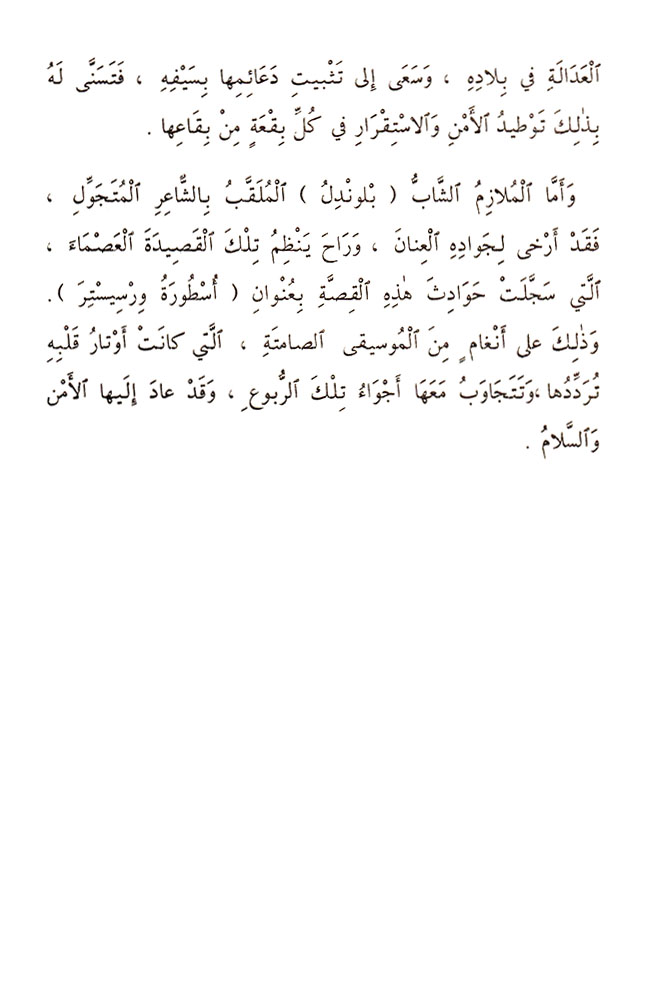 ٱلْعَدَالَةِ في بِلادِهِ ، وَسَعَى إِلى تَثْبيتِ دَعَائِمِها بِسَيْفِهِ ، فَتَسَنَّى لَهُ
بِذٰلِكَ تَوْطيدُ ٱلأَمْنِ وَٱلاسْتِقْرَارِ في كُلِّ بِقْعَةٍ مِنْ بِقَاعِها .
وَأَمَّا ٱلْمُلازِمُ ٱلشَّابُّ ( بْلونْدِلُ ) ٱلْمُلَقَّبُ بِالشَّاعِرِ ٱلْمُتَجَوِّلِ ،
فَقَدْ أَرْخى لِجَوادِهِ ٱلْعِنانَ ، وَرَاحَ يَنْظِمُ تِلْكَ ٱلْقَصِيدَةَ ٱلْعَصْمَاءَ ،
ٱلَّتي سَجَّلَتْ حَوَادِثَ هٰذِهِ ٱلْقِصَّةِ بِعُنْوانِ ( أُسْطُورَةُ وِرْسِيسْتِرَ ).
وَذٰلِكَ على أَنْغامٍ مِنَ ٱلْمُوسيقى ٱلصامتَةِ ، ٱلَّتي كانَتْ أَوْتارُ قَلْبِهِ
تُرَدِّدُها ،وَتَتَجَاوَبُ مَعَهَا أَجْوَاءُ تِلْكَ ٱلرُّبوعِ ، وَقَدْ عادَ إِلَيها ٱلأَمْن
وَٱلسَّلامُ .